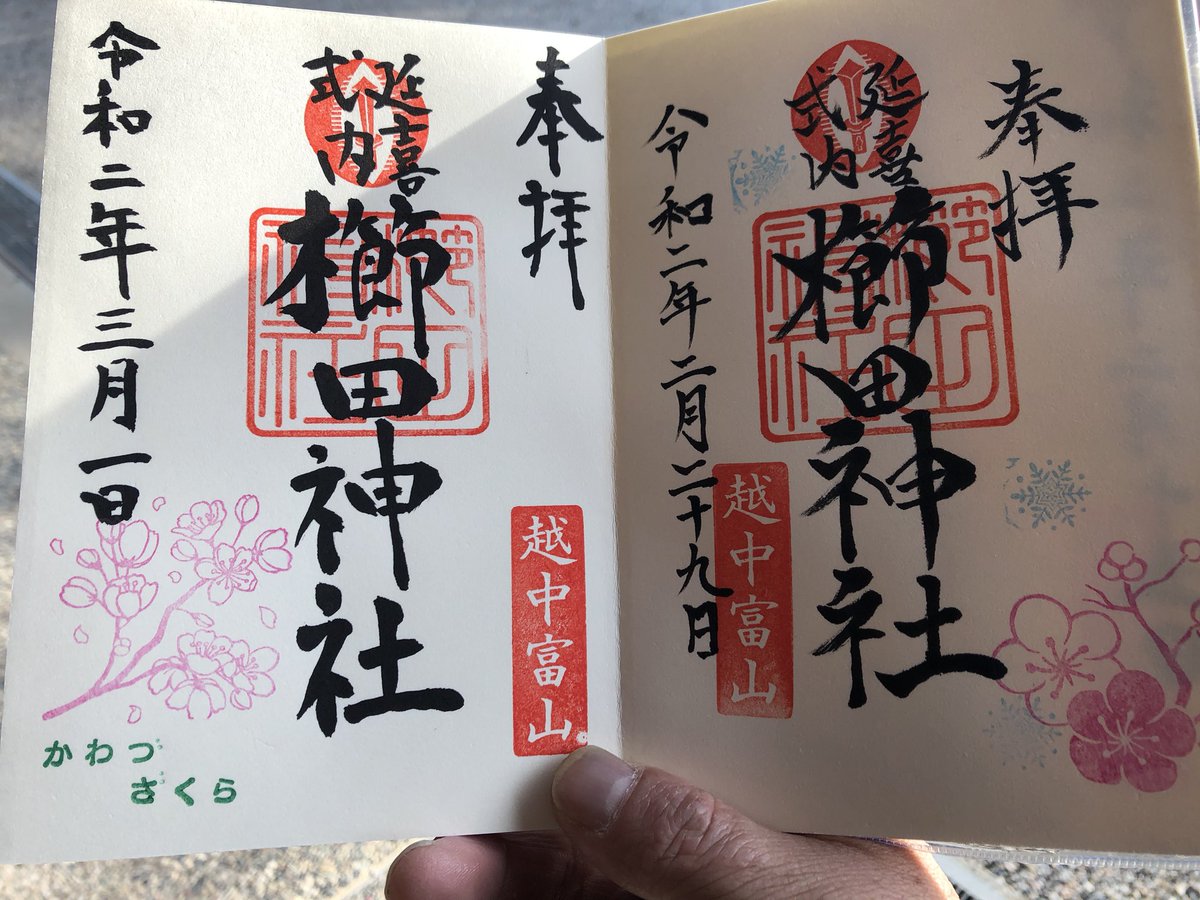 奉拝
延喜
式内
櫛田神社
令和二年二月二十九日
越中富山
奉拝
延喜
式内
櫛田神社
越中富山
令和二年三月一日
かわづ
ざくら